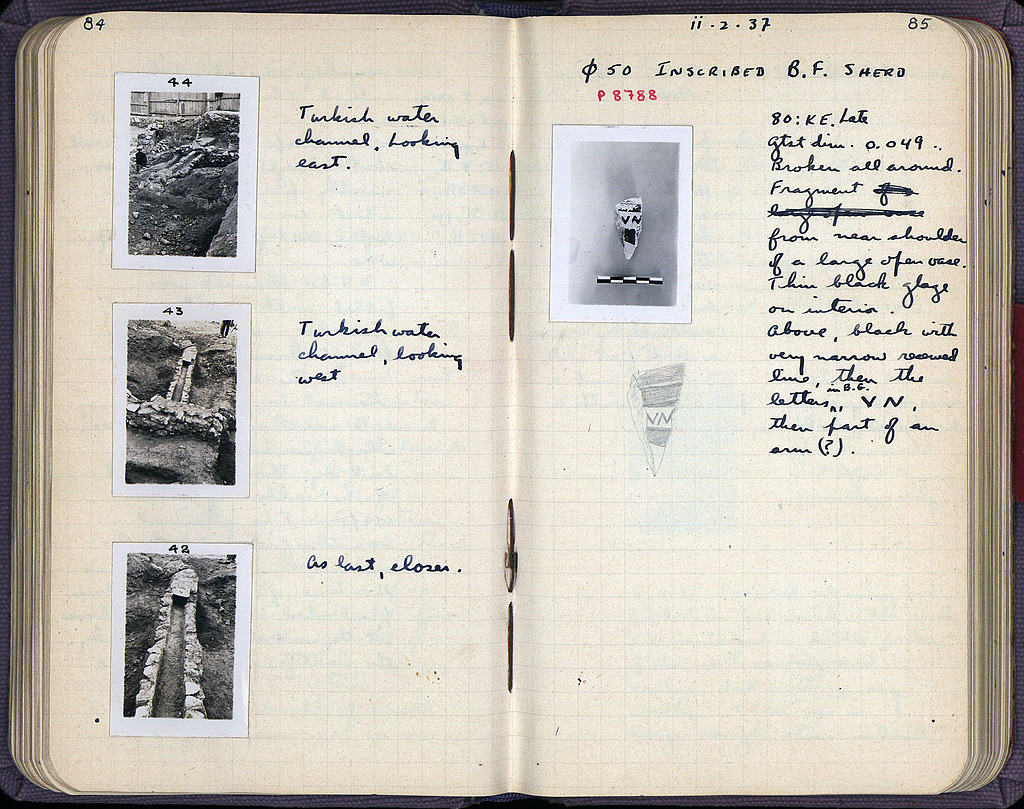 84
44
Turkish water
channel. Looking
east.
43
Turkish water
channel, looking
west
42
As last, closer.
ii · 2 · 37
85
φ 50 INSCRIBED B.F. SHERD
P 8788
VN
80:KE. Late
Gtst dim. 0.049..
Broken all around.
Fragment
from near shoulder
of a large open vase.
Thin black glaze
on interior.
Above, black with
very narrow reserved
line, then the
letters, in B.G. VN,
then part of an
arm (?).
VN